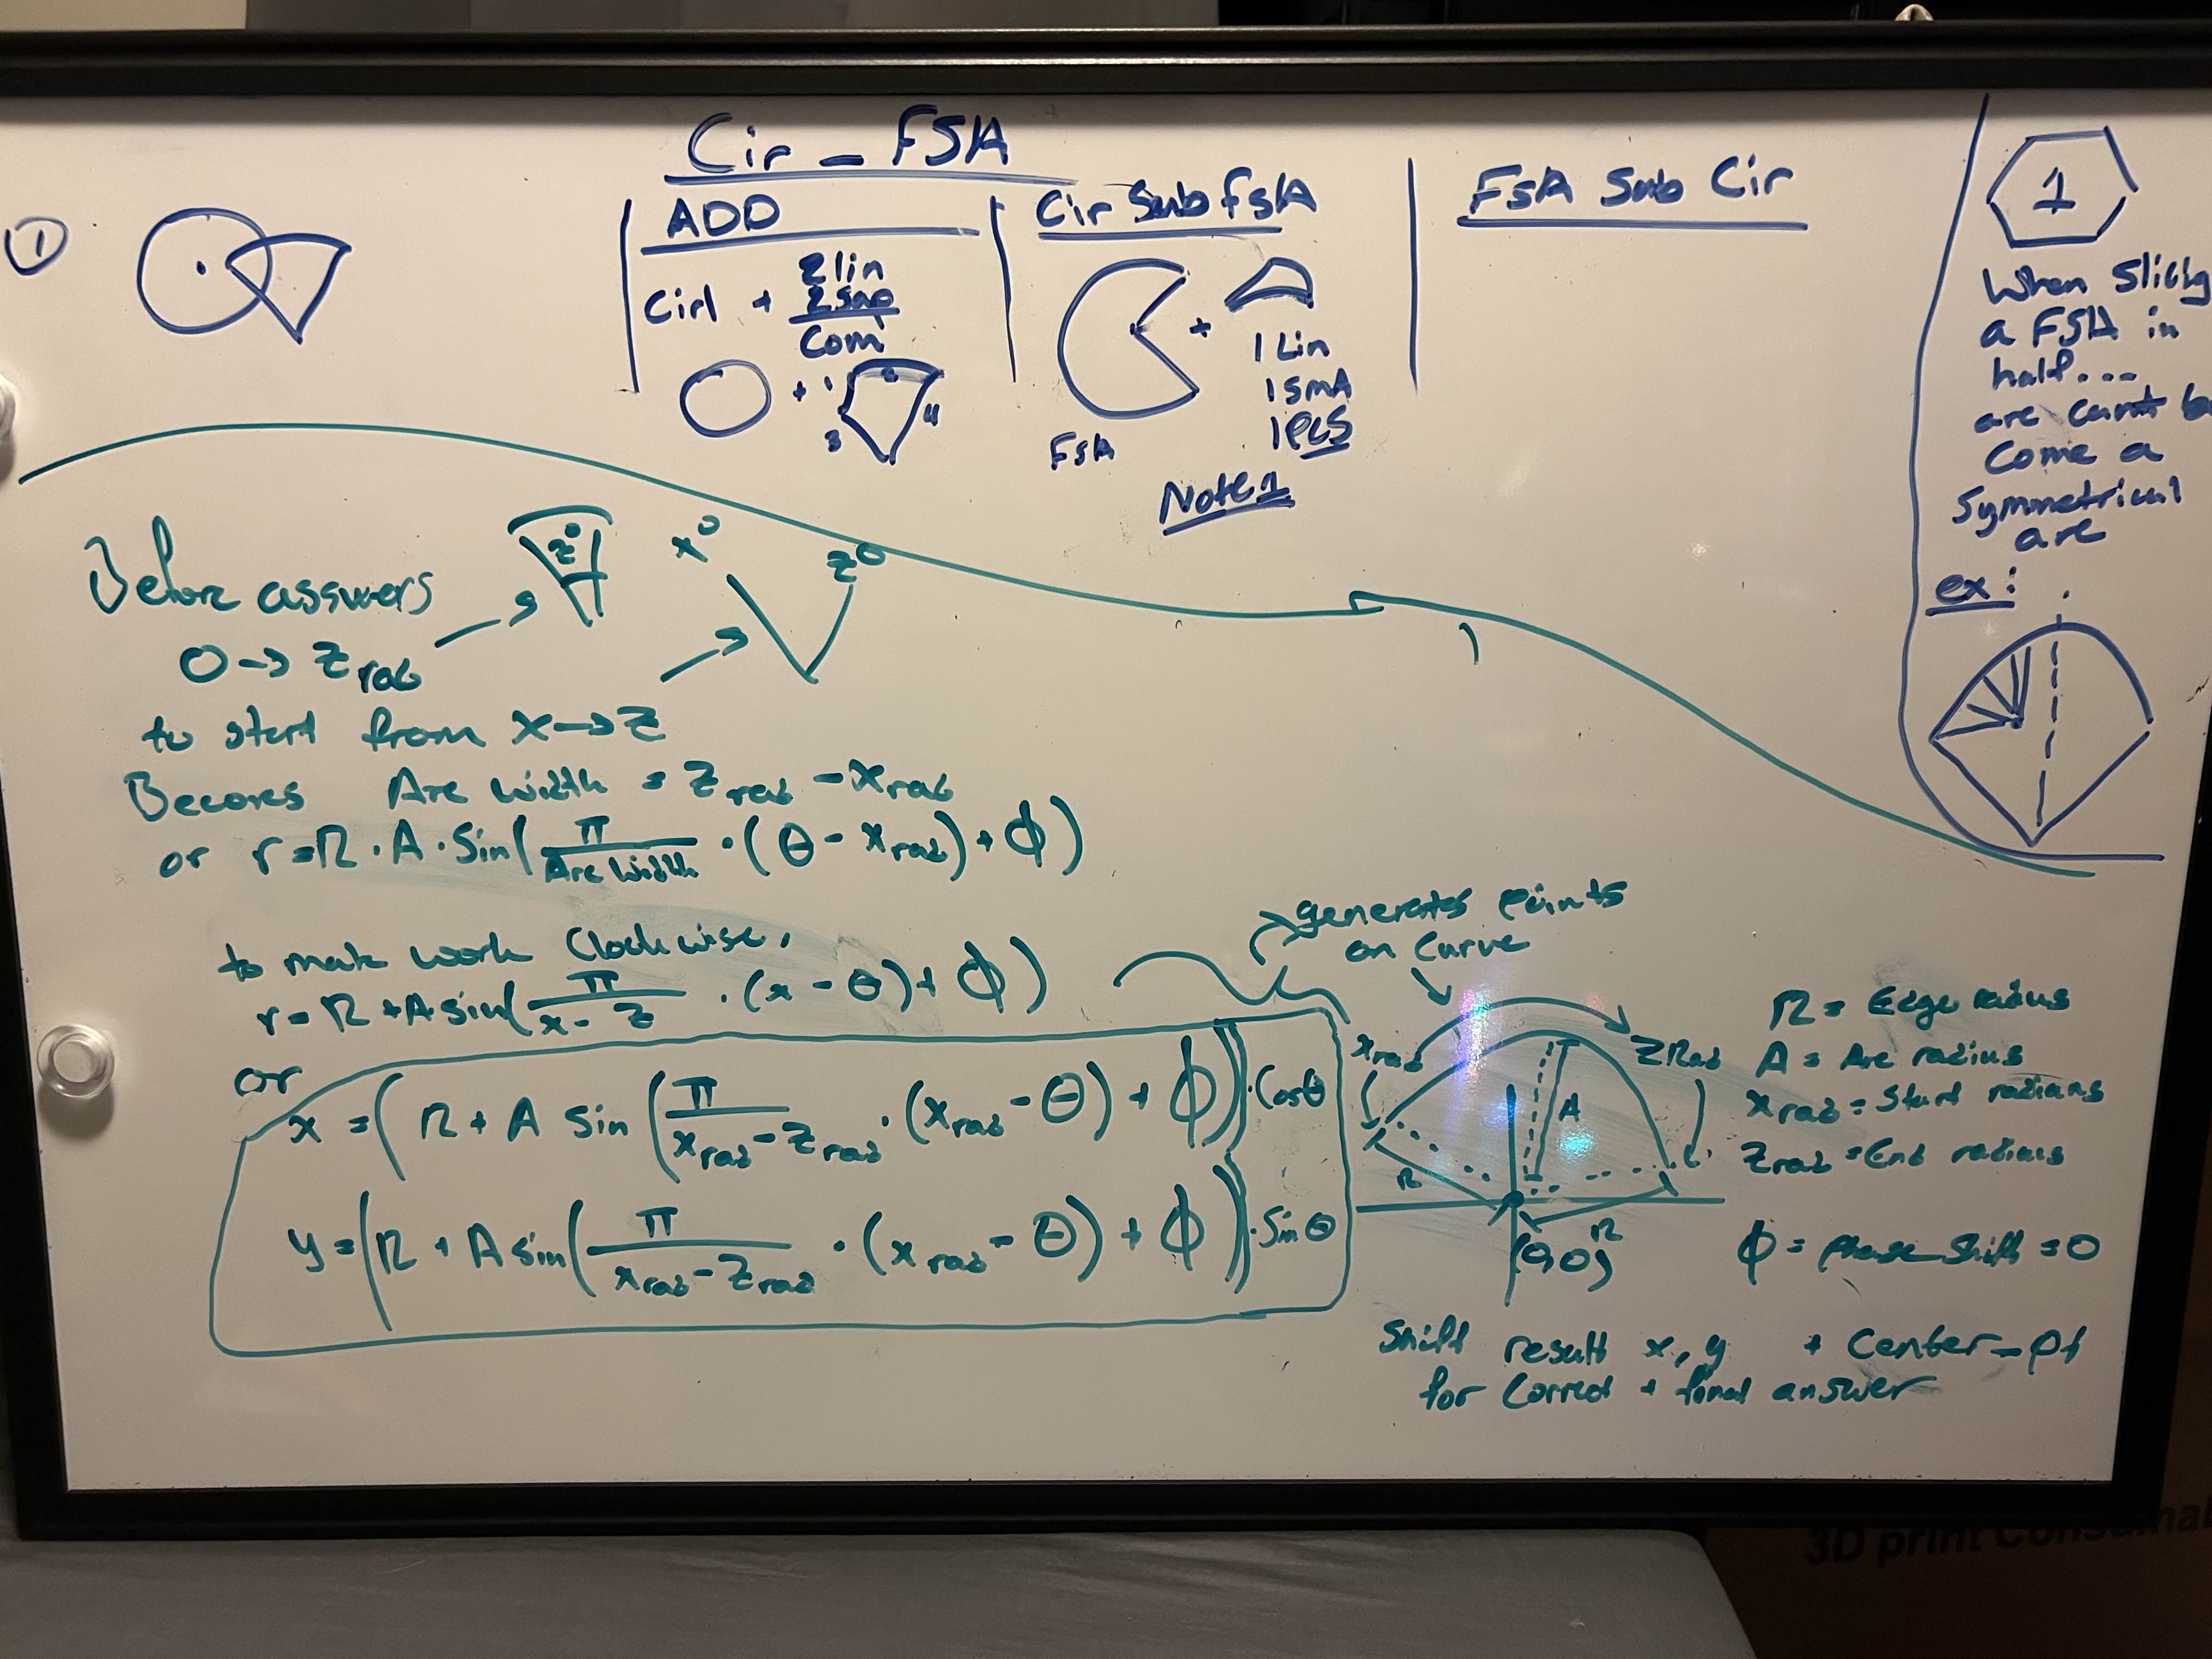 Cir - FSA
①
ADD
Cir1 + 2 lin
Com
+ 1
3
4
Cir Sub FSA
+
1 Lin
1 SMA
1 PCS
FSA
Note 1
FSA Sub Cir
1
When Slicing
a FSA in
half...
arc can't be
Come a
Symmetrical
arc
ex:
Before answers
0 → Z rad
z°
x°
z°
to start from x → z
Becomes Arc Width = Z rad - X rad
or r = R · A · Sin( π / Arc Width · (θ - x rad) + ϕ )
to make work Clockwise,
r = R + A sin( π / x - z · (x - θ) + ϕ )
or
x = ( R + A sin ( π / x rad - z rad · (x rad - θ) + ϕ )) · Cos θ
y = ( R + A sin ( π / x rad - z rad · (x rad - θ) + ϕ )) · Sin θ
generates points
on curve
x rad
Z Rad
A
R
R
(0,0)
R = Edge radius
A = Arc radius
X rad = Start radians
Z rad = End radians
ϕ = phase shift = 0
Shift result x, y + Center_pt
for Correct + final answer
3D print